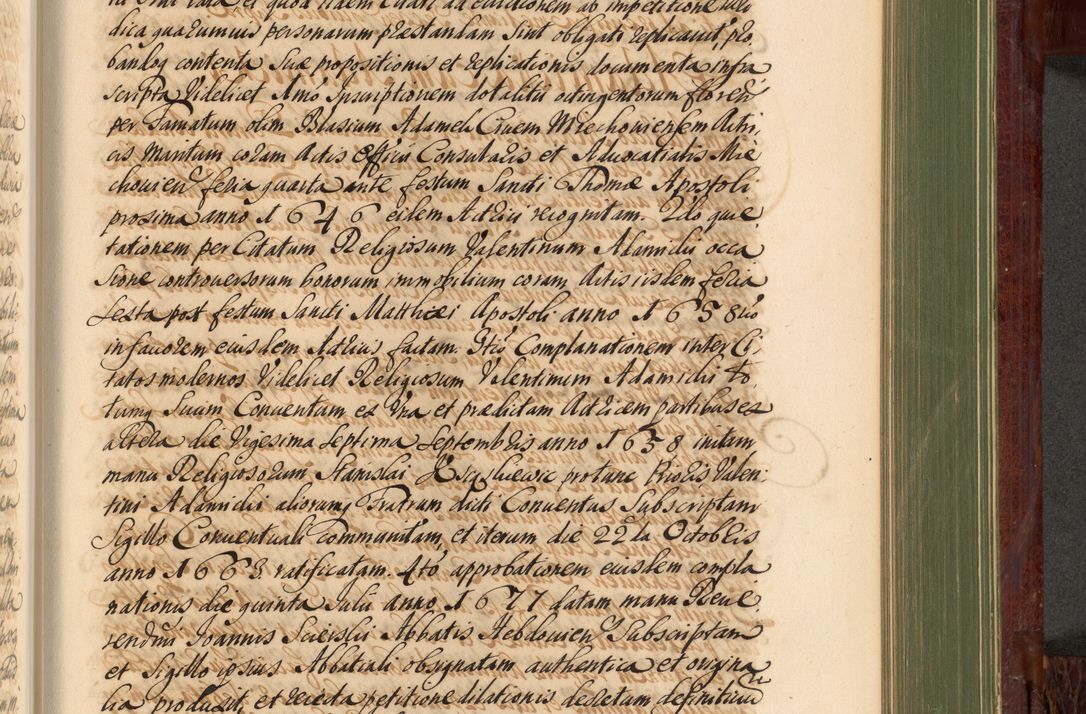 dica quarumuis personarum præstandam sint obligati replicauit, pro
banlog contenta Suæ propositionis et replicationis documenta infra
scripta Videlicet Imo Inscriptionem dotalitii octingentorum floren
per Famatum olim Blasium Adamek Ciuem Miechouiensem Actri,
cis Maritum coram Actis officii Consularis et Aduocatialis Mie
chouien feria quarta ante festum Sancti Thomæ Apostoli
proxima anno 1646 eidem Actrici recognitam. 2do quie
tationem per Citatum Religiosum Valentinum Adamicki occa
sione controuersorum bonorum immobilium coram Actis iisdem feria
sexta post festum Sancti Matthæi Apostoli anno 1658uo
in fauorem eiusdem Actricis factam. 3tio Complanationem inter Ci,
tatos modernos Videlicet Religiosum Valentinum Adamicki to,
tumq Suum Conuentum ex Vna et prædictam Actricem partibus ex
altera die Vigesima Septima Septembris anno 1658 initam
manu Religiosorum Stanislai protunc Prioris Valen,
tini Adamicki aliorumq Fratrum dicti Conuentus Subscriptam
Sigillo Conuentuali Communitam, et iterum die 22da Octobris
anno 1663. ratificatam. 4to approbationem eiusdem compla
nationis die quinta Julii anno 1677 datam manu Reue,
rendmi Joannis Scierski Abbatis Hebdouien Subscriptam
et Sigillo ipsius Abbatiali obsignatam authentica et origina
lia produxit, et reiecta petitione dilationis decretum definitiuu